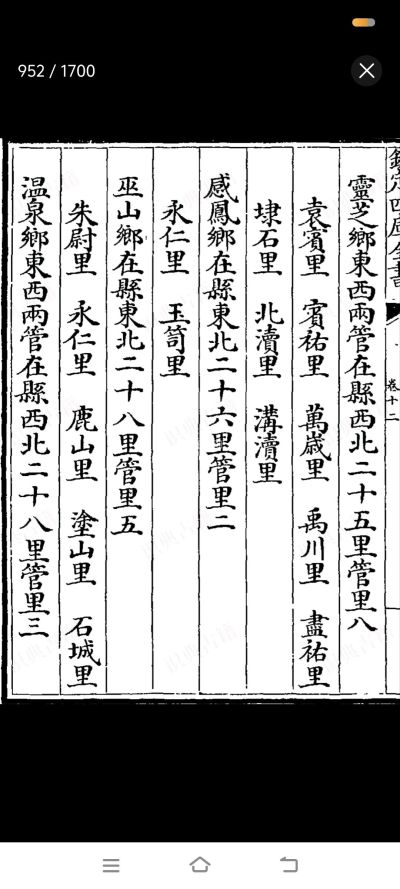 952 / 1700
欽定四庫全書
卷十二
靈芝鄉東西兩管在縣西北二十五里管里八
袁賓里 賓祐里 萬歲里 禹川里 盡祐里
埭石里 北瀆里 溝瀆里
感鳳鄉在縣東北二十六里管里二
永仁里 玉笥里
巫山鄉在縣東北二十八里管里五
朱尉里 永仁里 鹿山里 塗山里 石城里
溫泉鄉東西兩管在縣西北二十八里管里三